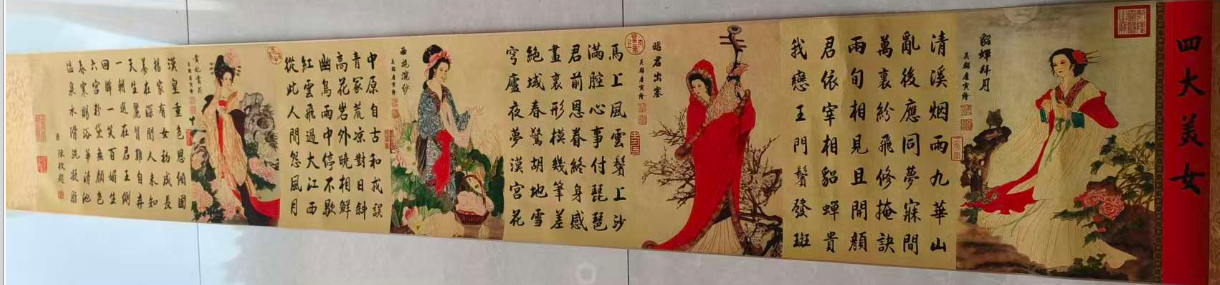 四大美女
貂蟬拜月
清溪烟雨九華山
亂後應同夢寐間
萬裏紛飛修掩訣
兩旬相見且開顏
君依宰相貂蟬貴
我戀王門鬢發斑
昭君出塞
馬上風雲鬢上沙
滿腔心事付琵琶
君前恩眷終身感
畫裏形模幾筆差
絕域春驚胡地雪
穹廬夜夢漢宮花
西施浣紗
中原自古和戎誤
青冢荒涼對日斜
高花岩外曉相鮮
幽鳥雨中啼不歇
紅雲飛過大江西
從此人間怨風月
漢皇重色思傾國
楊家有女初成長
養在深閨人未知
天生麗質難自弃
一朝選在君王側
回眸一笑百媚生
六宮粉黛無顏色
春寒賜浴華清池
溫泉水滑洗凝脂